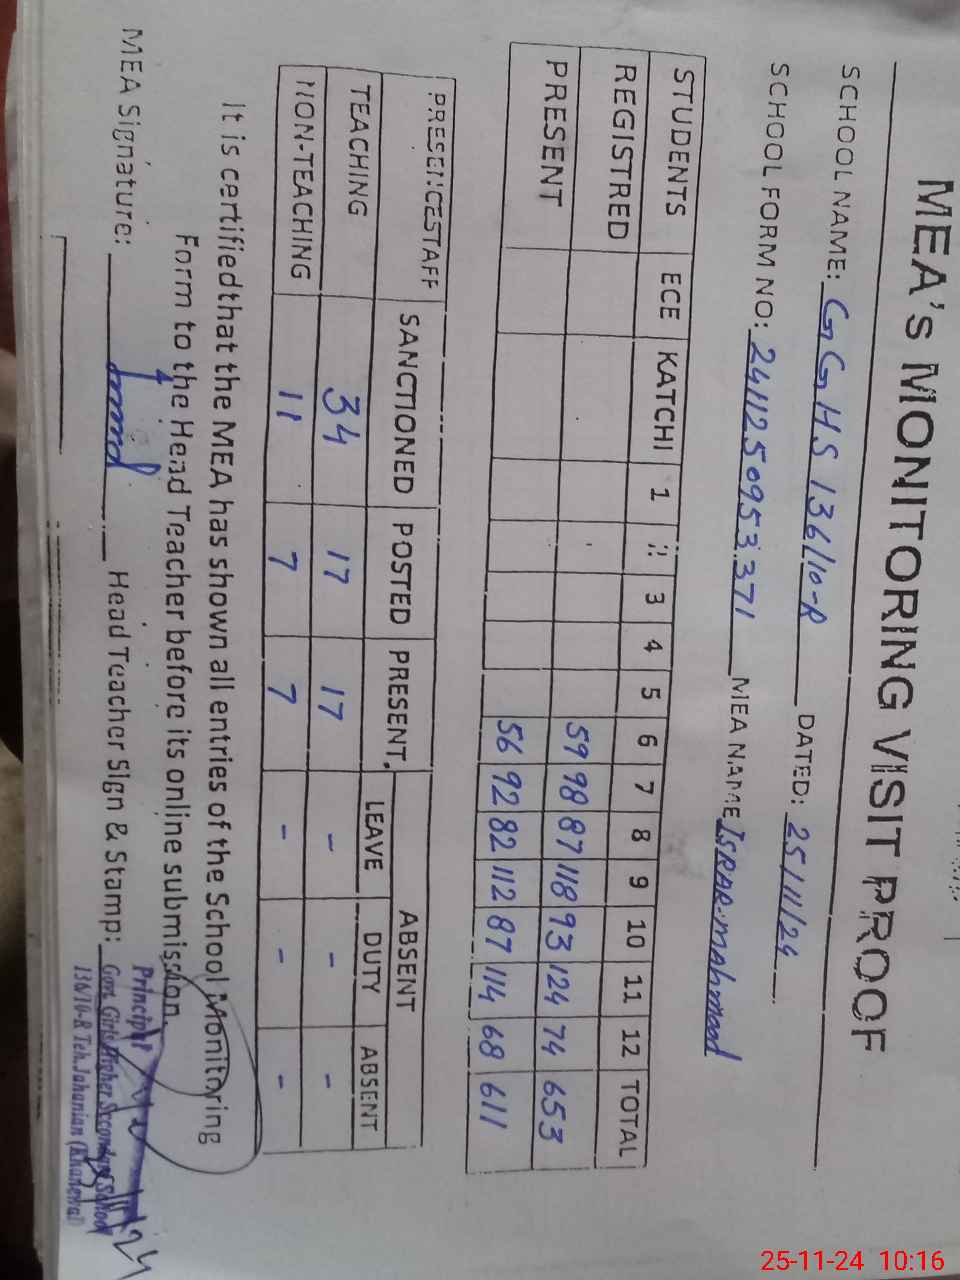 MEA's MONITORING VISIT PROOF
SCHOOL NAME: GGHS 136/10-R DATED: 25/11/24
SCHOOL FORM NO: 241125 0953 371 MEA NAME ISRAR Mahmood
STUDENTS ECE KATCHI 1 2 3 4 5 6 7 8 9 10 11 12 TOTAL
REGISTRED 59 98 87 118 93 124 74 653
PRESENT 56 92 82 112 87 114 68 611
PRESENCESTAFF SANCTIONED POSTED PRESENT ABSENT
LEAVE DUTY ABSENT
TEACHING 34 17 17 - - -
NON-TEACHING 11 7 7 - - -
It is certifiedthat the MEA has shown all entries of the School Monitoring
Form to the Head Teacher before its online submission.
MEA Signature: Head Teacher Sign & Stamp:
Principal
Govt. Girls Higher Secondary School
136/10-R Teh. Jahanian (Khanewal)
25-11-24 10:16